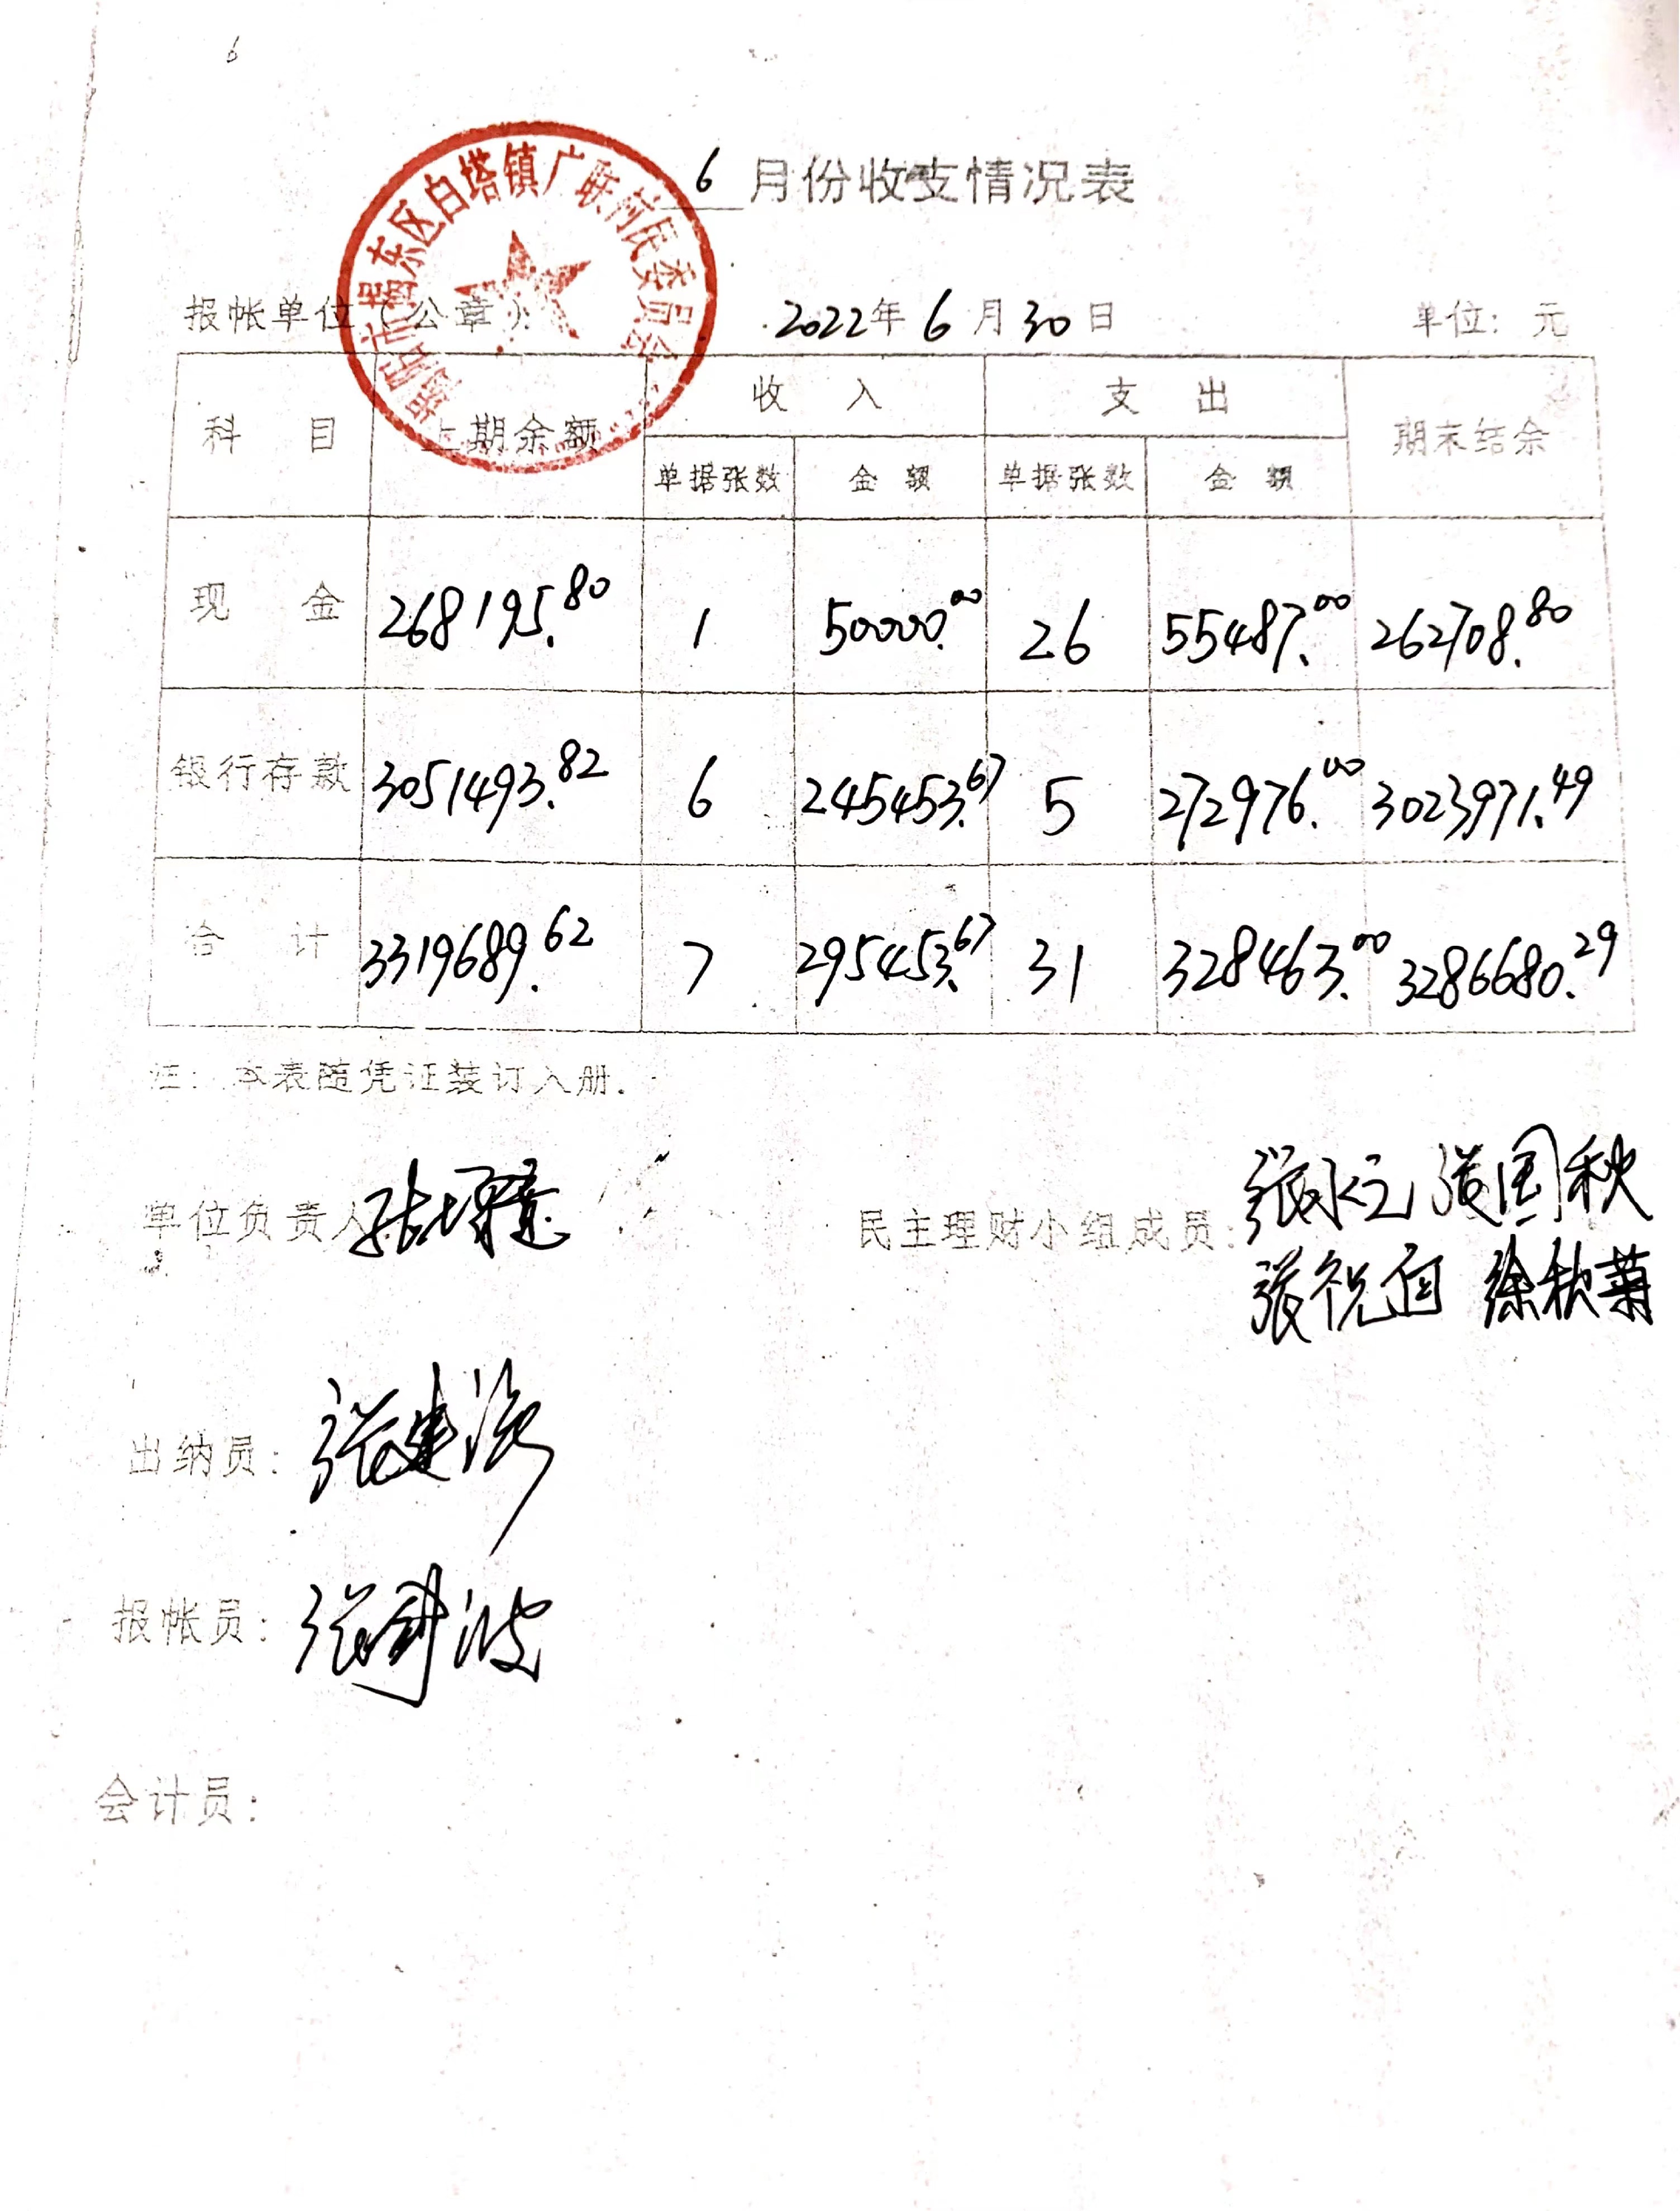 6
6月份收支情况表
揭阳市揭东区白塔镇广联村民委员会
报帐单位(公章) 2022年6月30日 单位:元
科目 上期余额 收入 支出 期末结余
单据张数 金额 单据张数 金额
现金 268195.80 1 50000.00 26 55487.00 262708.80
银行存款 3051493.82 6 245453.67 5 272976.00 3023971.49
合计 3319689.62 7 295453.67 31 328463.00 3286680.29
注:本表随凭证装订入册.
单位负责人 民主理财小组成员: 张国秋
徐秋菊
出纳员:
报帐员:
会计员: